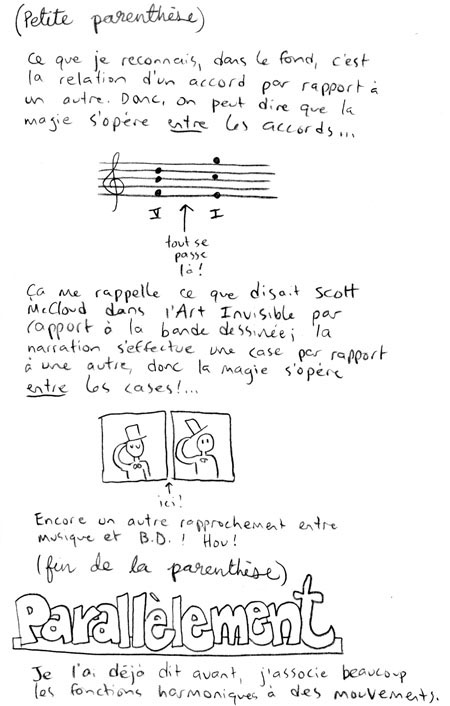 (Petite parenthèse)
Ce que je reconnais, dans le fond, c'est
la relation d'un accord par rapport à
un autre. Donc, on peut dire que la
magie s'opère entre les accords...
V I
tout se
passe
là!
Ça me rappelle ce que disait Scott
McCloud dans l'Art Invisible par
rapport à la bande dessinée; la
narration s'effectue une case par rapport
à une autre, donc la magie s'opère
entre les cases!...
ici!
Encore un autre rapprochement entre
musique et B.D.! Hou!
(fin de la parenthèse)
Parallèlement
Je l'ai déjà dit avant, j'associe beaucoup
les fonctions harmoniques à des mouvements.